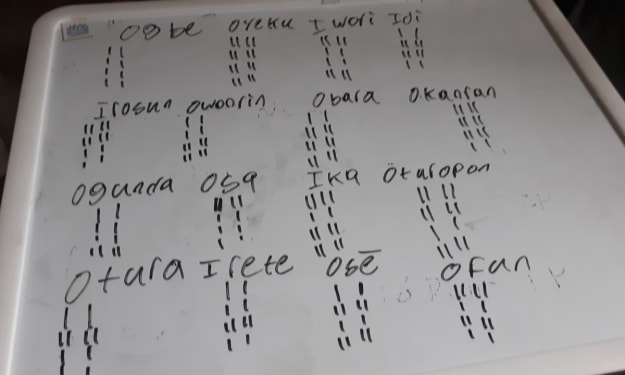 Ogbe Oyeku Iwori Idi
Irosun Owonrin Obara Okanran
Ogunda Osa Ika Oturopon
Otura Irete Osē Ofun